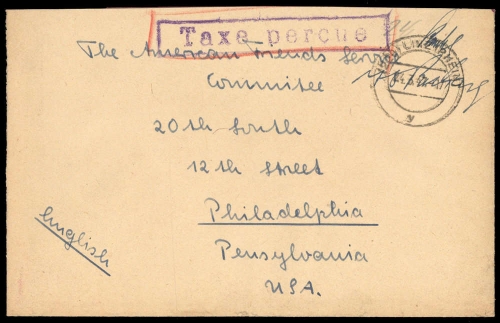 Taxe percue
The American Friends Service
Committee
20th South
12th Street
Philadelphia
Pensylvania
U.S.A.
English